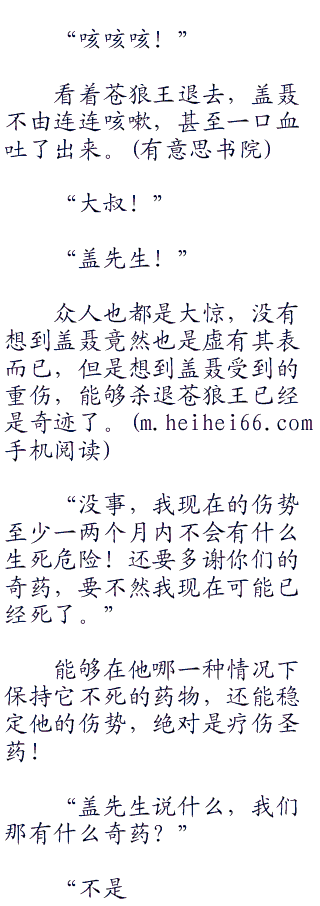 “咳咳咳！”
看着苍狼王退去，盖聂
不由连连咳嗽，甚至一口血
吐了出来。(有意思书院)
“大叔！”
“盖先生！”
众人也都是大惊，没有
想到盖聂竟然也是虚有其表
而已，但是想到盖聂受到的
重伤，能够杀退苍狼王已经
是奇迹了。(m.heihei66.com
手机阅读)
“没事，我现在的伤势
至少一两个月内不会有什么
生死危险！还要多谢你们的
奇药，要不然我现在可能已
经死了。”
能够在他哪一种情况下
保持它不死的药物，还能稳
定他的伤势，绝对是疗伤圣
药！
“盖先生说什么，我们
那有什么奇药？”
“不是